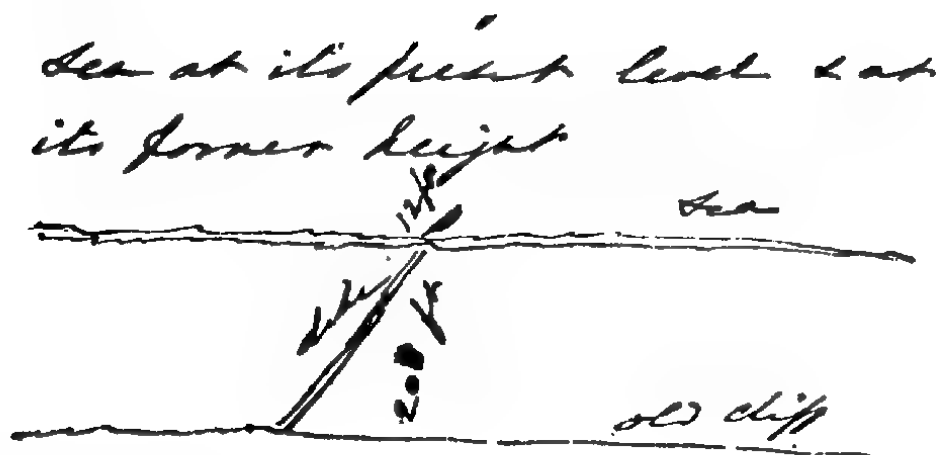 sea at it's present level & at
its former height
sea
200
old cliff